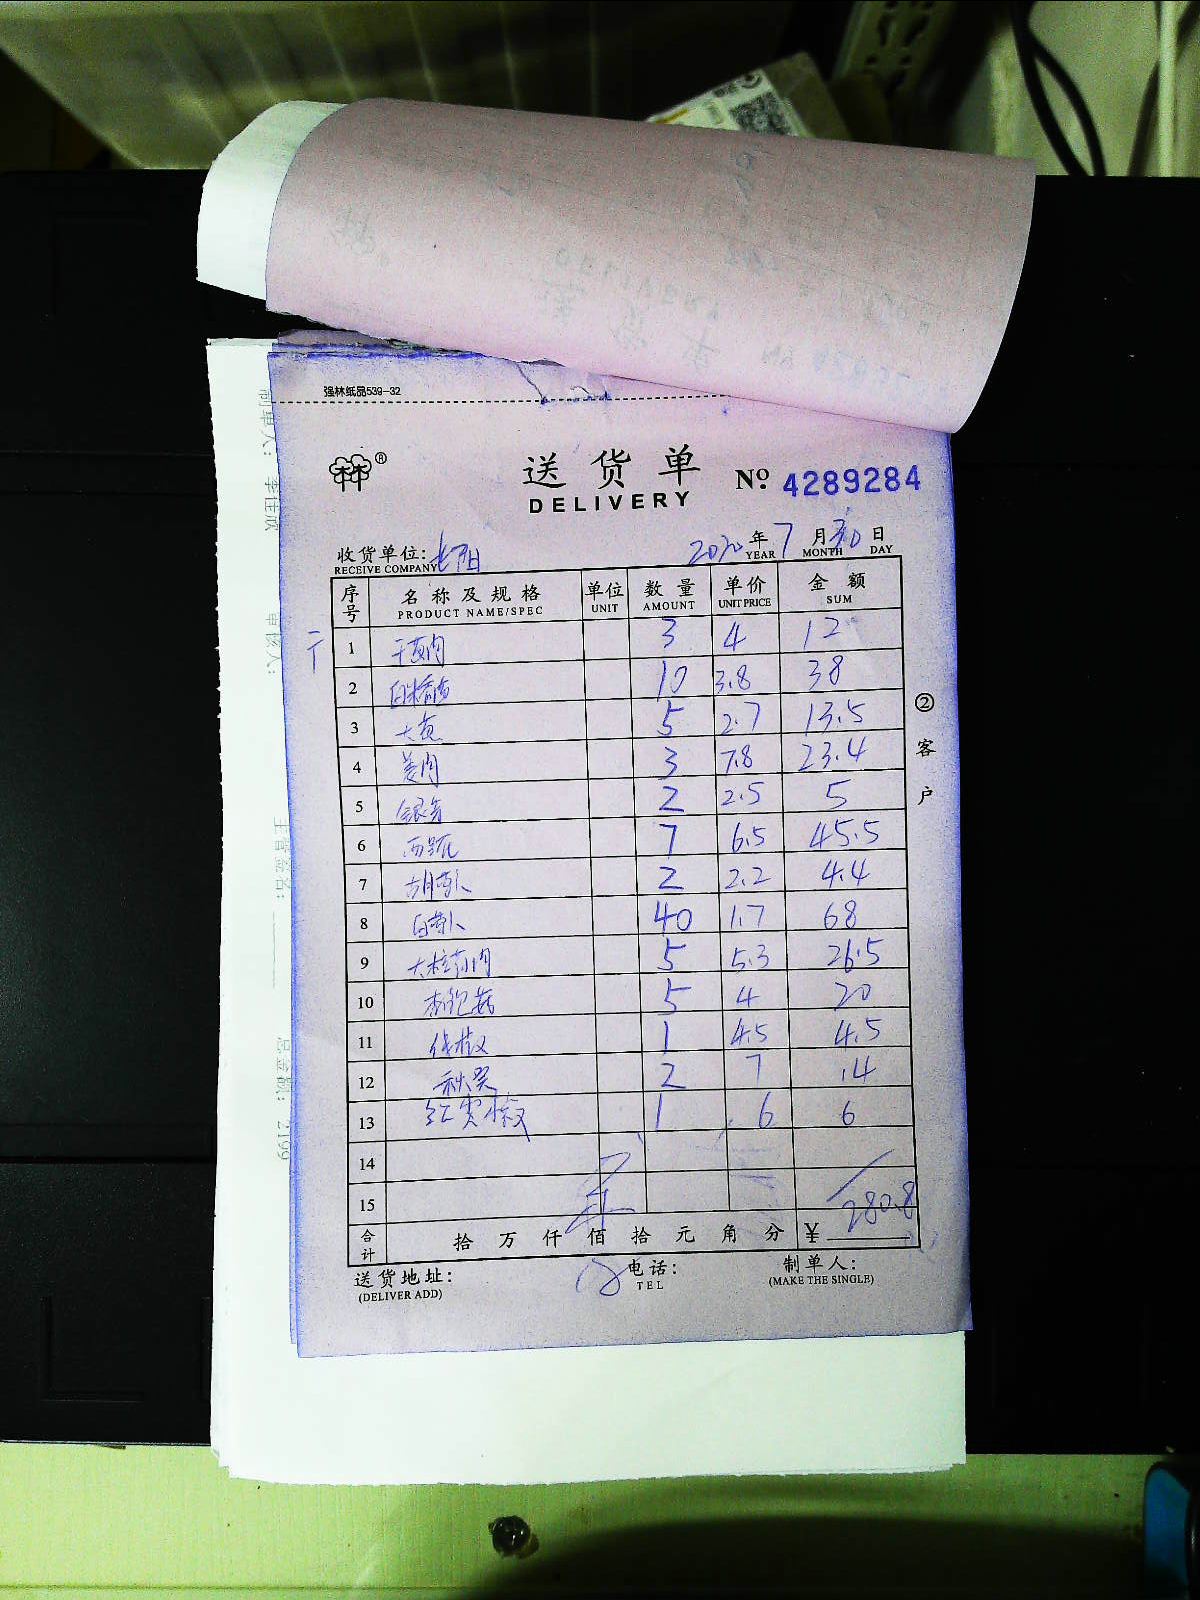 强林纸品539-32
林林®
送货单 № 4289284
DELIVERY
收货单位: 2020年7月30日
RECEIVE COMPANY YEAR MONTH DAY
序号 名称及规格 单位 数量 单价 金额
PRODUCT NAME/SPEC UNIT AMOUNT UNIT PRICE SUM
1 3 4 12
2 10 3.8 38
3 5 2.7 13.5
4 姜肉 3 7.8 23.4
5 银芽 2 2.5 5
6 7 6.5 45.5
7 胡萝卜 2 2.2 4.4
8 白萝卜 40 1.7 68
9 5 5.3 26.5
10 杏鲍菇 5 4 20
11 线椒 1 4.5 4.5
12 秋葵 2 7 14
13 红黄椒 1 6 6
14
15
合计 拾万仟佰拾元角分 ¥ 280.8
送货地址: 电话: 制单人:
(DELIVER ADD) TEL (MAKE THE SINGLE)
②客户
制单人: 李佳欣
审核人:
主管签名:
总金额: 2199